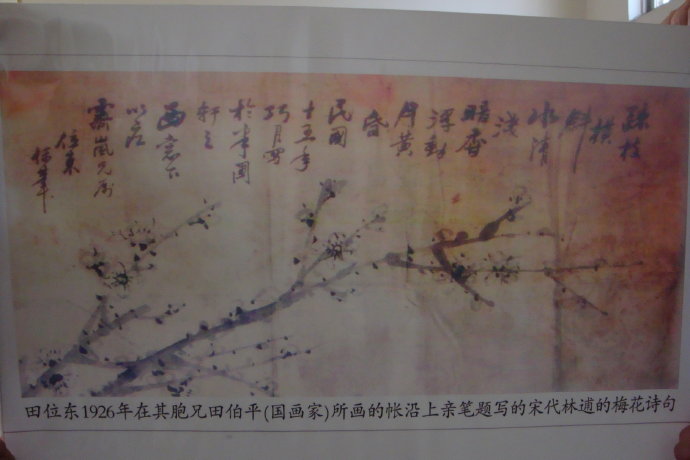 疎枝
横
斜
水清
浅
暗香
浮動
月黄
昏
民國
十五年
於半園
轩之
西窓下
以应
霽嵐兄属
位東
田位东1926年在其胞兄田伯平(国画家)所画的帐沿上亲笔题写的宋代林逋的梅花诗句